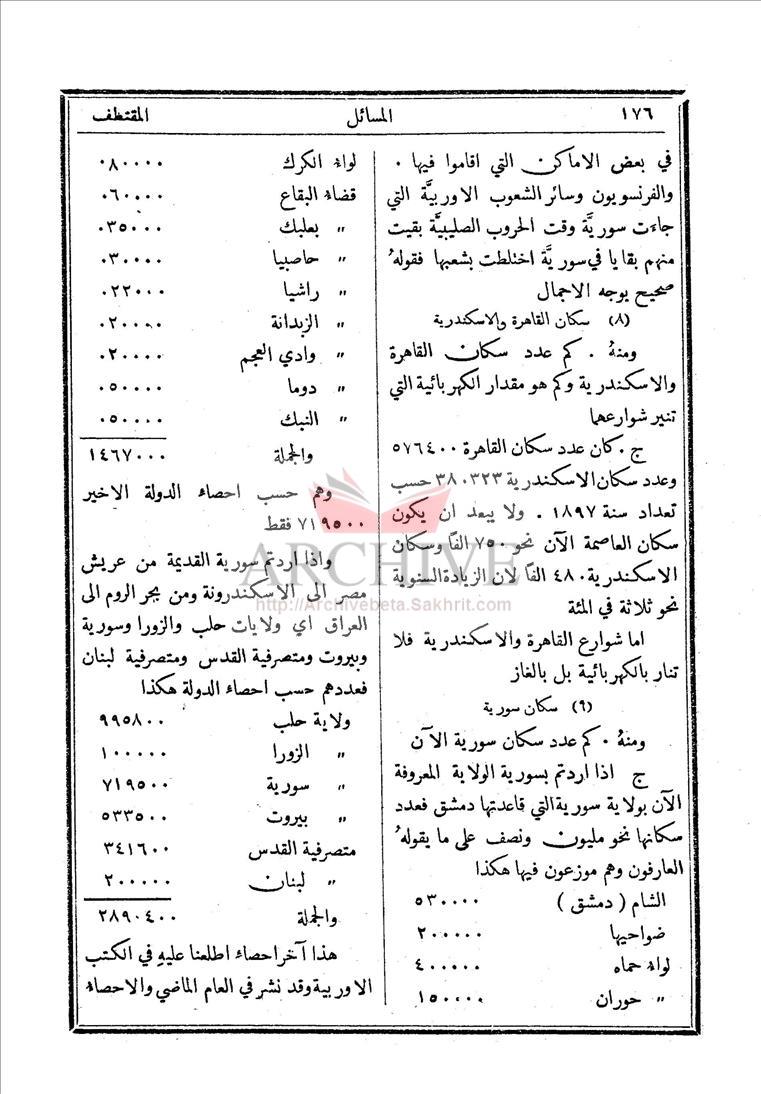 ١٧٦ المسائل المقتطف
في بعض الاماكن التي اقاموا فيها .
والفرنسويون وسائر الشعوب الاوربيَّة التي
جاءت سوريَّة وقت الحروب الصليبيَّة بقيت
منهم بقايا في سوريَّة اختلطت بشعبها فقولهُ
صحيح بوجه الاجمال
(٨) سكان القاهرة والاسكندرية
ومنهُ . كم عدد سكان القاهرة
والاسكندرية وكم هو مقدار الكهربائية التي
تنير شوارعهما
ج . كان عدد سكان القاهرة ٥٧٦٤٠٠
وعدد سكان الاسكندرية ٣٨٠٣٢٣ حسب
تعداد سنة ١٨٩٧ . ولا يبعد ان يكون
سكان العاصمة الآن نحو ٧٥٠ الفًا وسكان
الاسكندرية ٤٨٠ الفًا لان الزيادة السنوية
نحو ثلاثة في المئة
اما شوارع القاهرة والاسكندرية فلا
تنار بالكهربائية بل بالغاز
(٦) سكان سورية
ومنهُ . كم عدد سكان سورية الآن
ج اذا اردتم بسورية الولاية المعروفة
الآن بولاية سورية التي قاعدتها دمشق فعدد
سكانها نحو مليون ونصف على ما يقولهُ
العارفون وهم موزعون فيها هكذا
الشام ( دمشق ) ٥٣٠٠٠٠
ضواحيها ٢٠٠٠٠٠
لواء حماه ٤٠٠٠٠٠
" حوران ١٥٠٠٠٠
لواء الكرك ٠٨٠٠٠٠
قضاء البقاع ٠٦٠٠٠٠
" بعلبك ٠٣٥٠٠٠
" حاصبيا ٠٣٠٠٠٠
" راشيا ٠٢٢٠٠٠
" الزبدانة ٠٢٠٠٠٠
" وادي العجم ٠٢٠٠٠٠
" دوما ٠٥٠٠٠٠
" النبك ٠٥٠٠٠٠
والجملة ١٤٦٧٠٠٠
وهم حسب احصاء الدولة الاخير
٧١٩٥٠٠ فقط
واذا اردتم سورية القديمة من عريش
مصر الى الاسكندرونة ومن بحر الروم الى
العراق اي ولايات حلب والزورا وسورية
وبيروت ومتصرفية القدس ومتصرفية لبنان
فعددهم حسب احصاء الدولة هكذا
ولاية حلب ٩٩٥٨٠٠
" الزورا ١٠٠٠٠٠
" سورية ٧١٩٥٠٠
" بيروت ٥٣٣٥٠٠
متصرفية القدس ٣٤١٦٠٠
" لبنان ٢٠٠٠٠٠
والجملة ٢٨٩٠٤٠٠
هذا آخر احصاء اطلعنا عليهِ في الكتب
الاوربية وقد نشر في العام الماضي والاحصاء
ARCHIVE
http://Archivebeta.Sakhrit.com